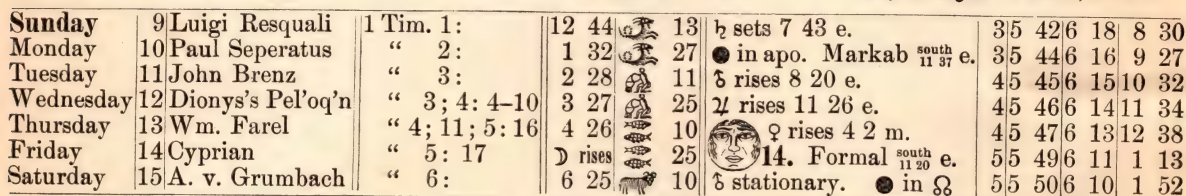 Sunday 9 Luigi Resquali 1 Tim. 1: 12 44 13 ♄ sets 7 43 e. 3 5 42 6 18 8 30
Monday 10 Paul Seperatus “ 2: 1 32 27 ● in apo. Markab south 11 37 e. 3 5 44 6 16 9 27
Tuesday 11 John Brenz “ 3: 2 28 11 ♁ rises 8 20 e. 4 5 45 6 15 10 32
Wednesday 12 Dionys's Pel'oq'n “ 3; 4: 4–10 3 27 25 ♃ rises 11 26 e. 4 5 46 6 14 11 34
Thursday 13 Wm. Farel “ 4; 11; 5: 16 4 26 10 ♀ rises 4 2 m. 4 5 47 6 13 12 38
Friday 14 Cyprian “ 5: 17 ☽ rises 25 14. Formal south 11 20 e. 5 5 49 6 11 1 13
Saturday 15 A. v. Grumbach “ 6: 6 25 10 ♁ stationary. ● in ☊ 5 5 50 6 10 1 52